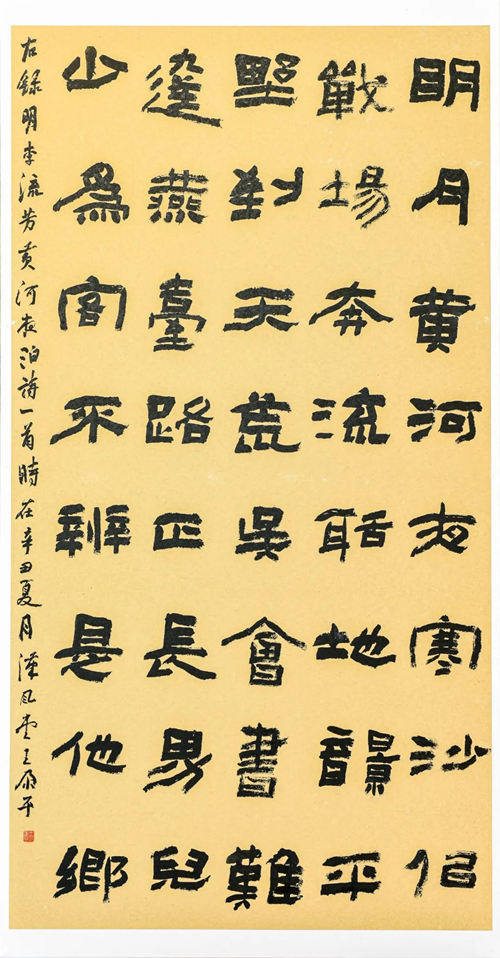 明月黄河夜寒沙似
戰場奔流聒地響平
墅到天荒吳會書難
達燕臺路正長男兒
少爲客不辨是他鄉
右録明李流芳黄河夜泊詩一首時在辛丑夏月漢風堂王平